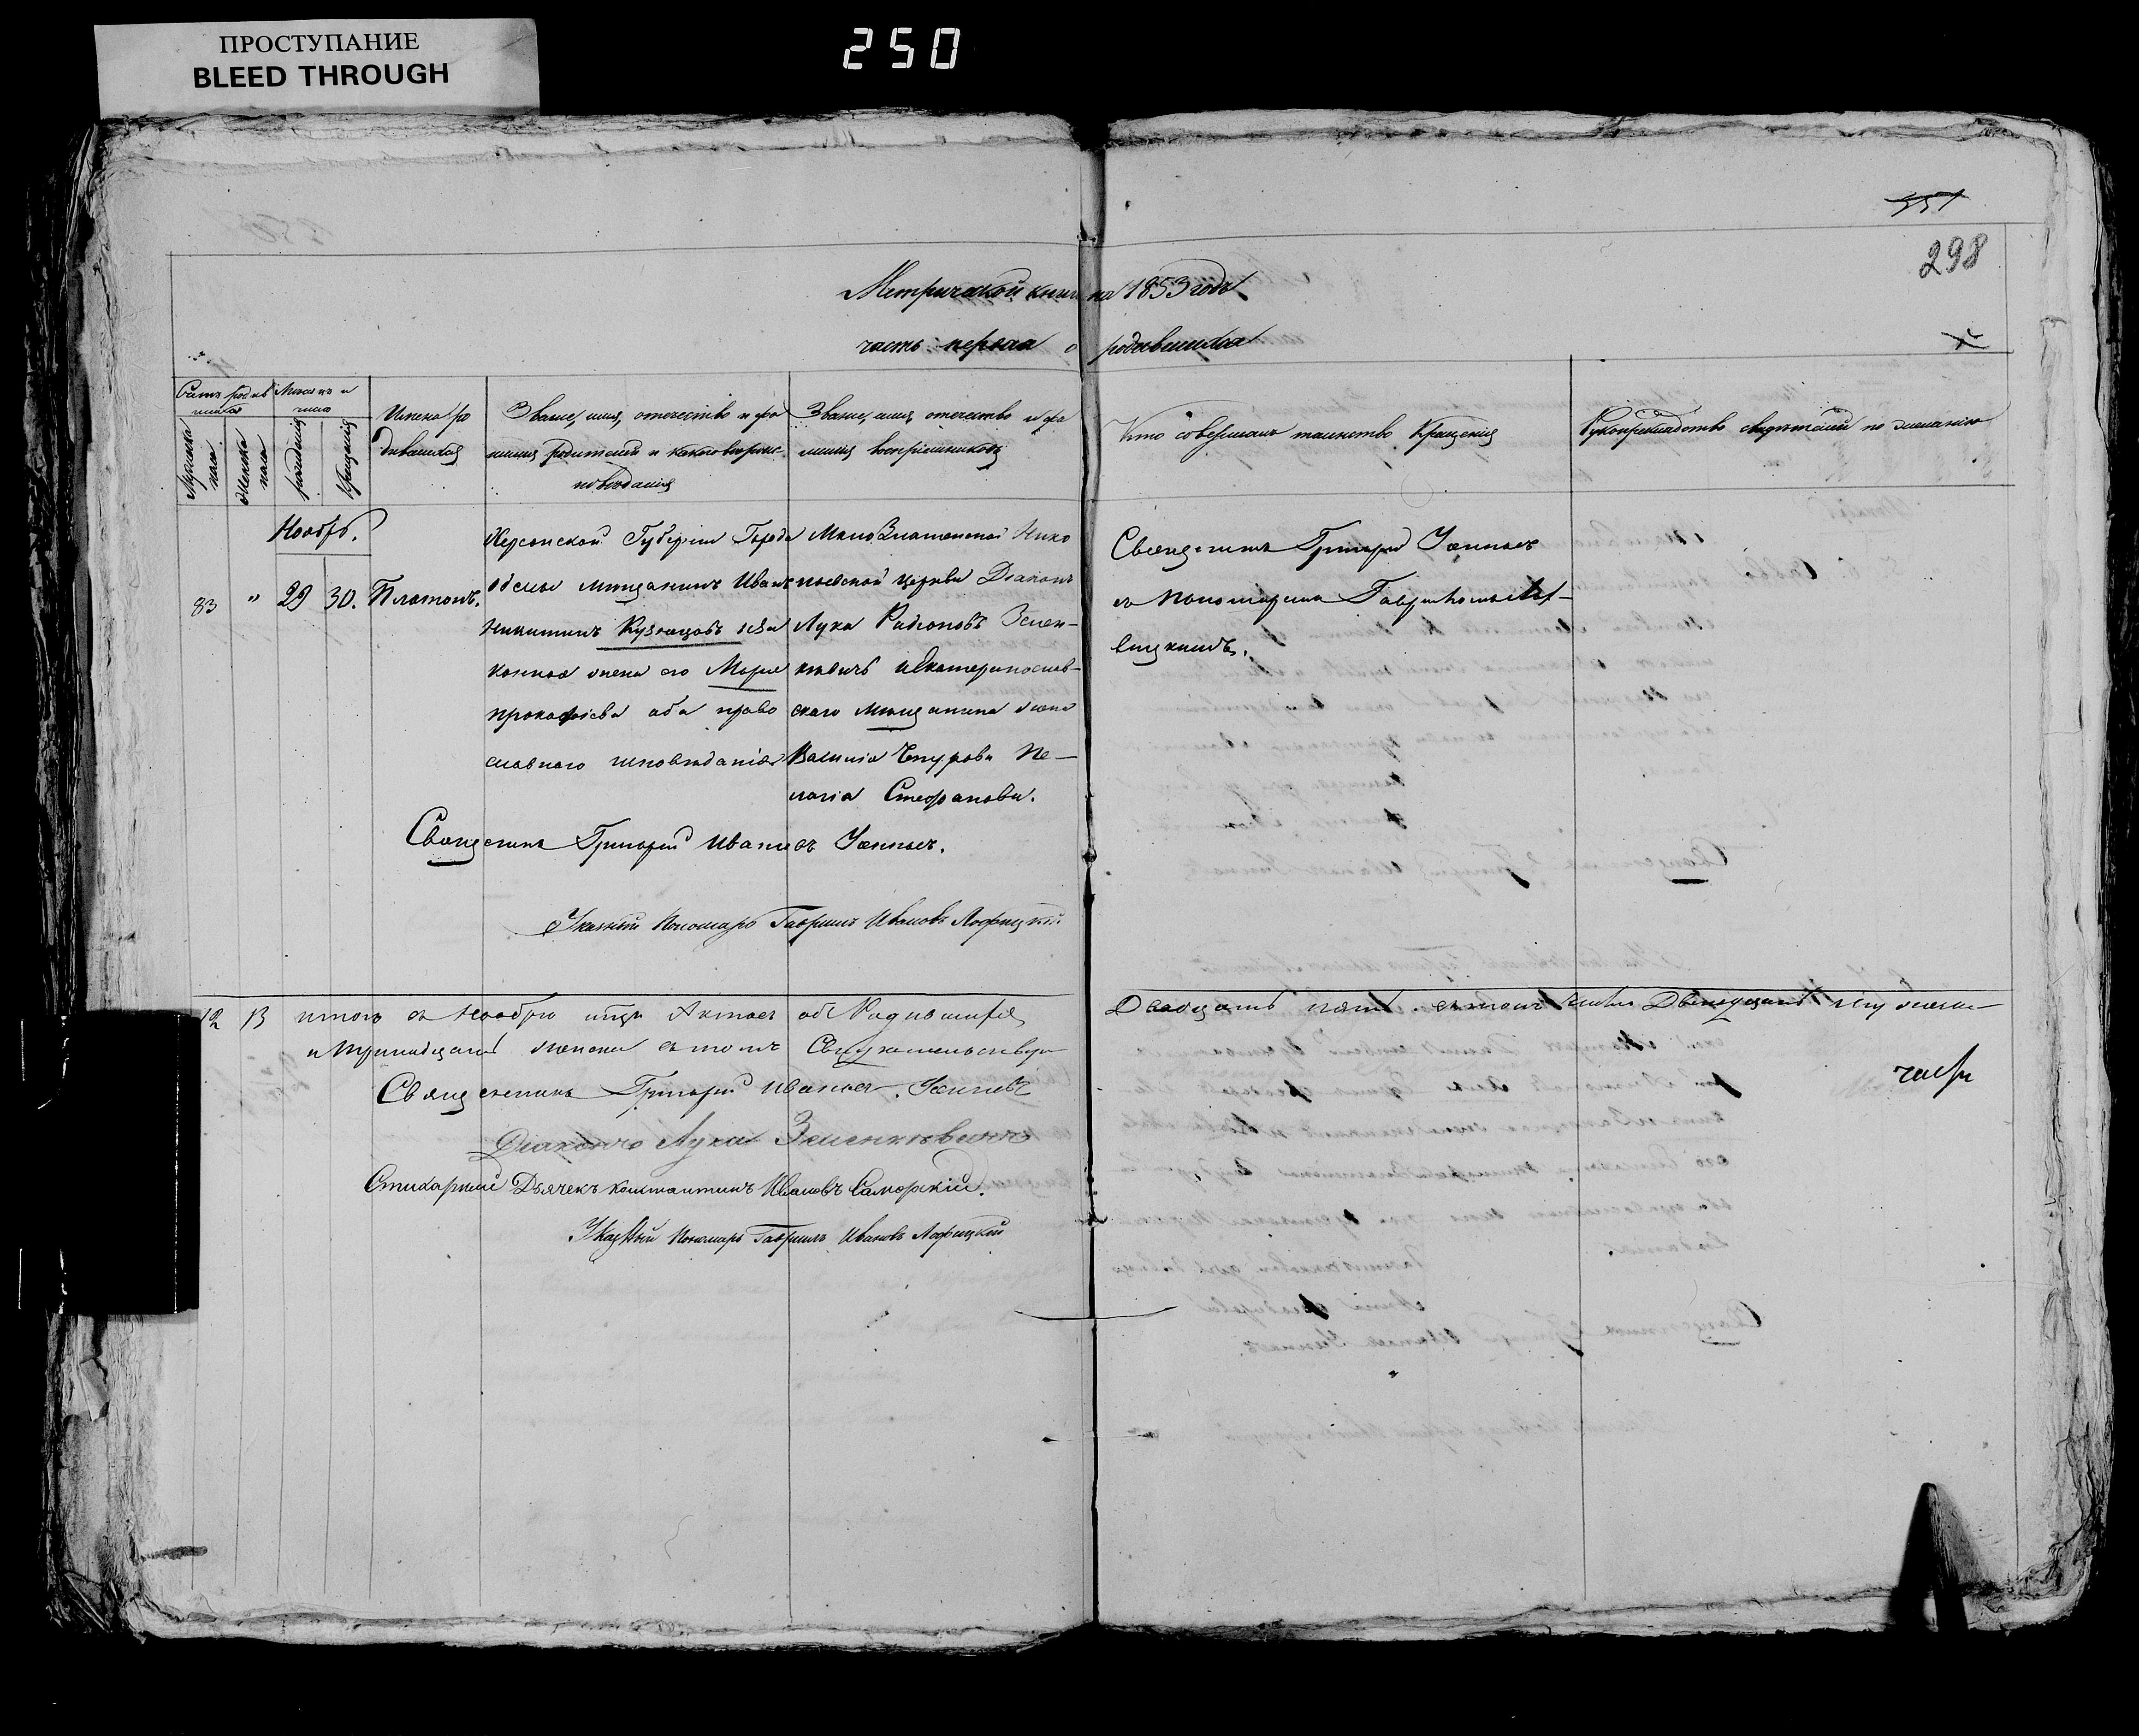 ПРОСТУПАНИЕ
BLEED THROUGH
250
351
298
Метрической книги на 1853 годъ
часть первая о родившихся
Счетъ родившихся
Мужеска пола
Женска пола
Месяцъ и число
рождения
Крещения
Имена родившихся
Звание, имя, отечество и фамилия родителей и какого вероисповедания
Звание, имя отечество и фамилия восприемниковъ
Кто совершалъ таинство Крещения
Рукоприкладство свидетелей по желанию
Ноябрь.
83 " 29 30. Платонъ.
Херсонской Губернии Города
мещанинъ Иванъ
Никитинъ Кузнецовъ и за
конная жена его Мария
Прокофиева оба право
славного исповедания
Николаевской церкви Диаконъ
Лука Родионовъ Зелен-
кевичъ и Екатеринослав-
скаго мещанина жена
Василия Чепурова Пе-
лагия Стефанова.
Священникъ Григорий
съ пономаремъ Гавриломъ Лоф-
вицкимъ.
Священникъ Григорий Иваневъ
Указный Пономарь Гавриилъ Ивановъ Лофицкий
12 13 итого въ Ноябре месяце Актовъ объ Родившихся Двадцать пять въ томъ числе Двенадцать мужеска
и тринадцать женска въ томъ Свидетельствуемъ
Священникъ Григорий Иваневъ
Диаконъ Лука Зеленкевичъ
Стихарный Дьячекъ Константинъ Ивановъ Саморский.
Указный Пономарь Гавриилъ Ивановъ Лофицкий